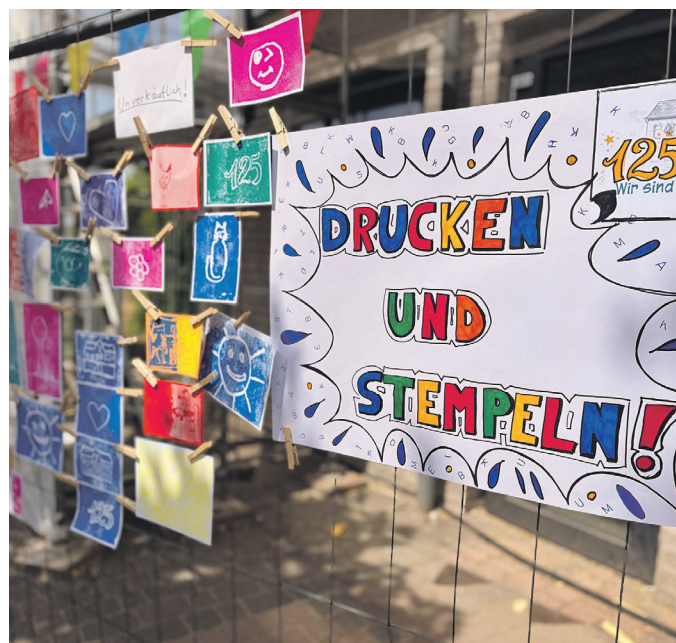 Unverkäuflich!
125
DRUCKEN
UND
STEMPELN!
125
Wir sind